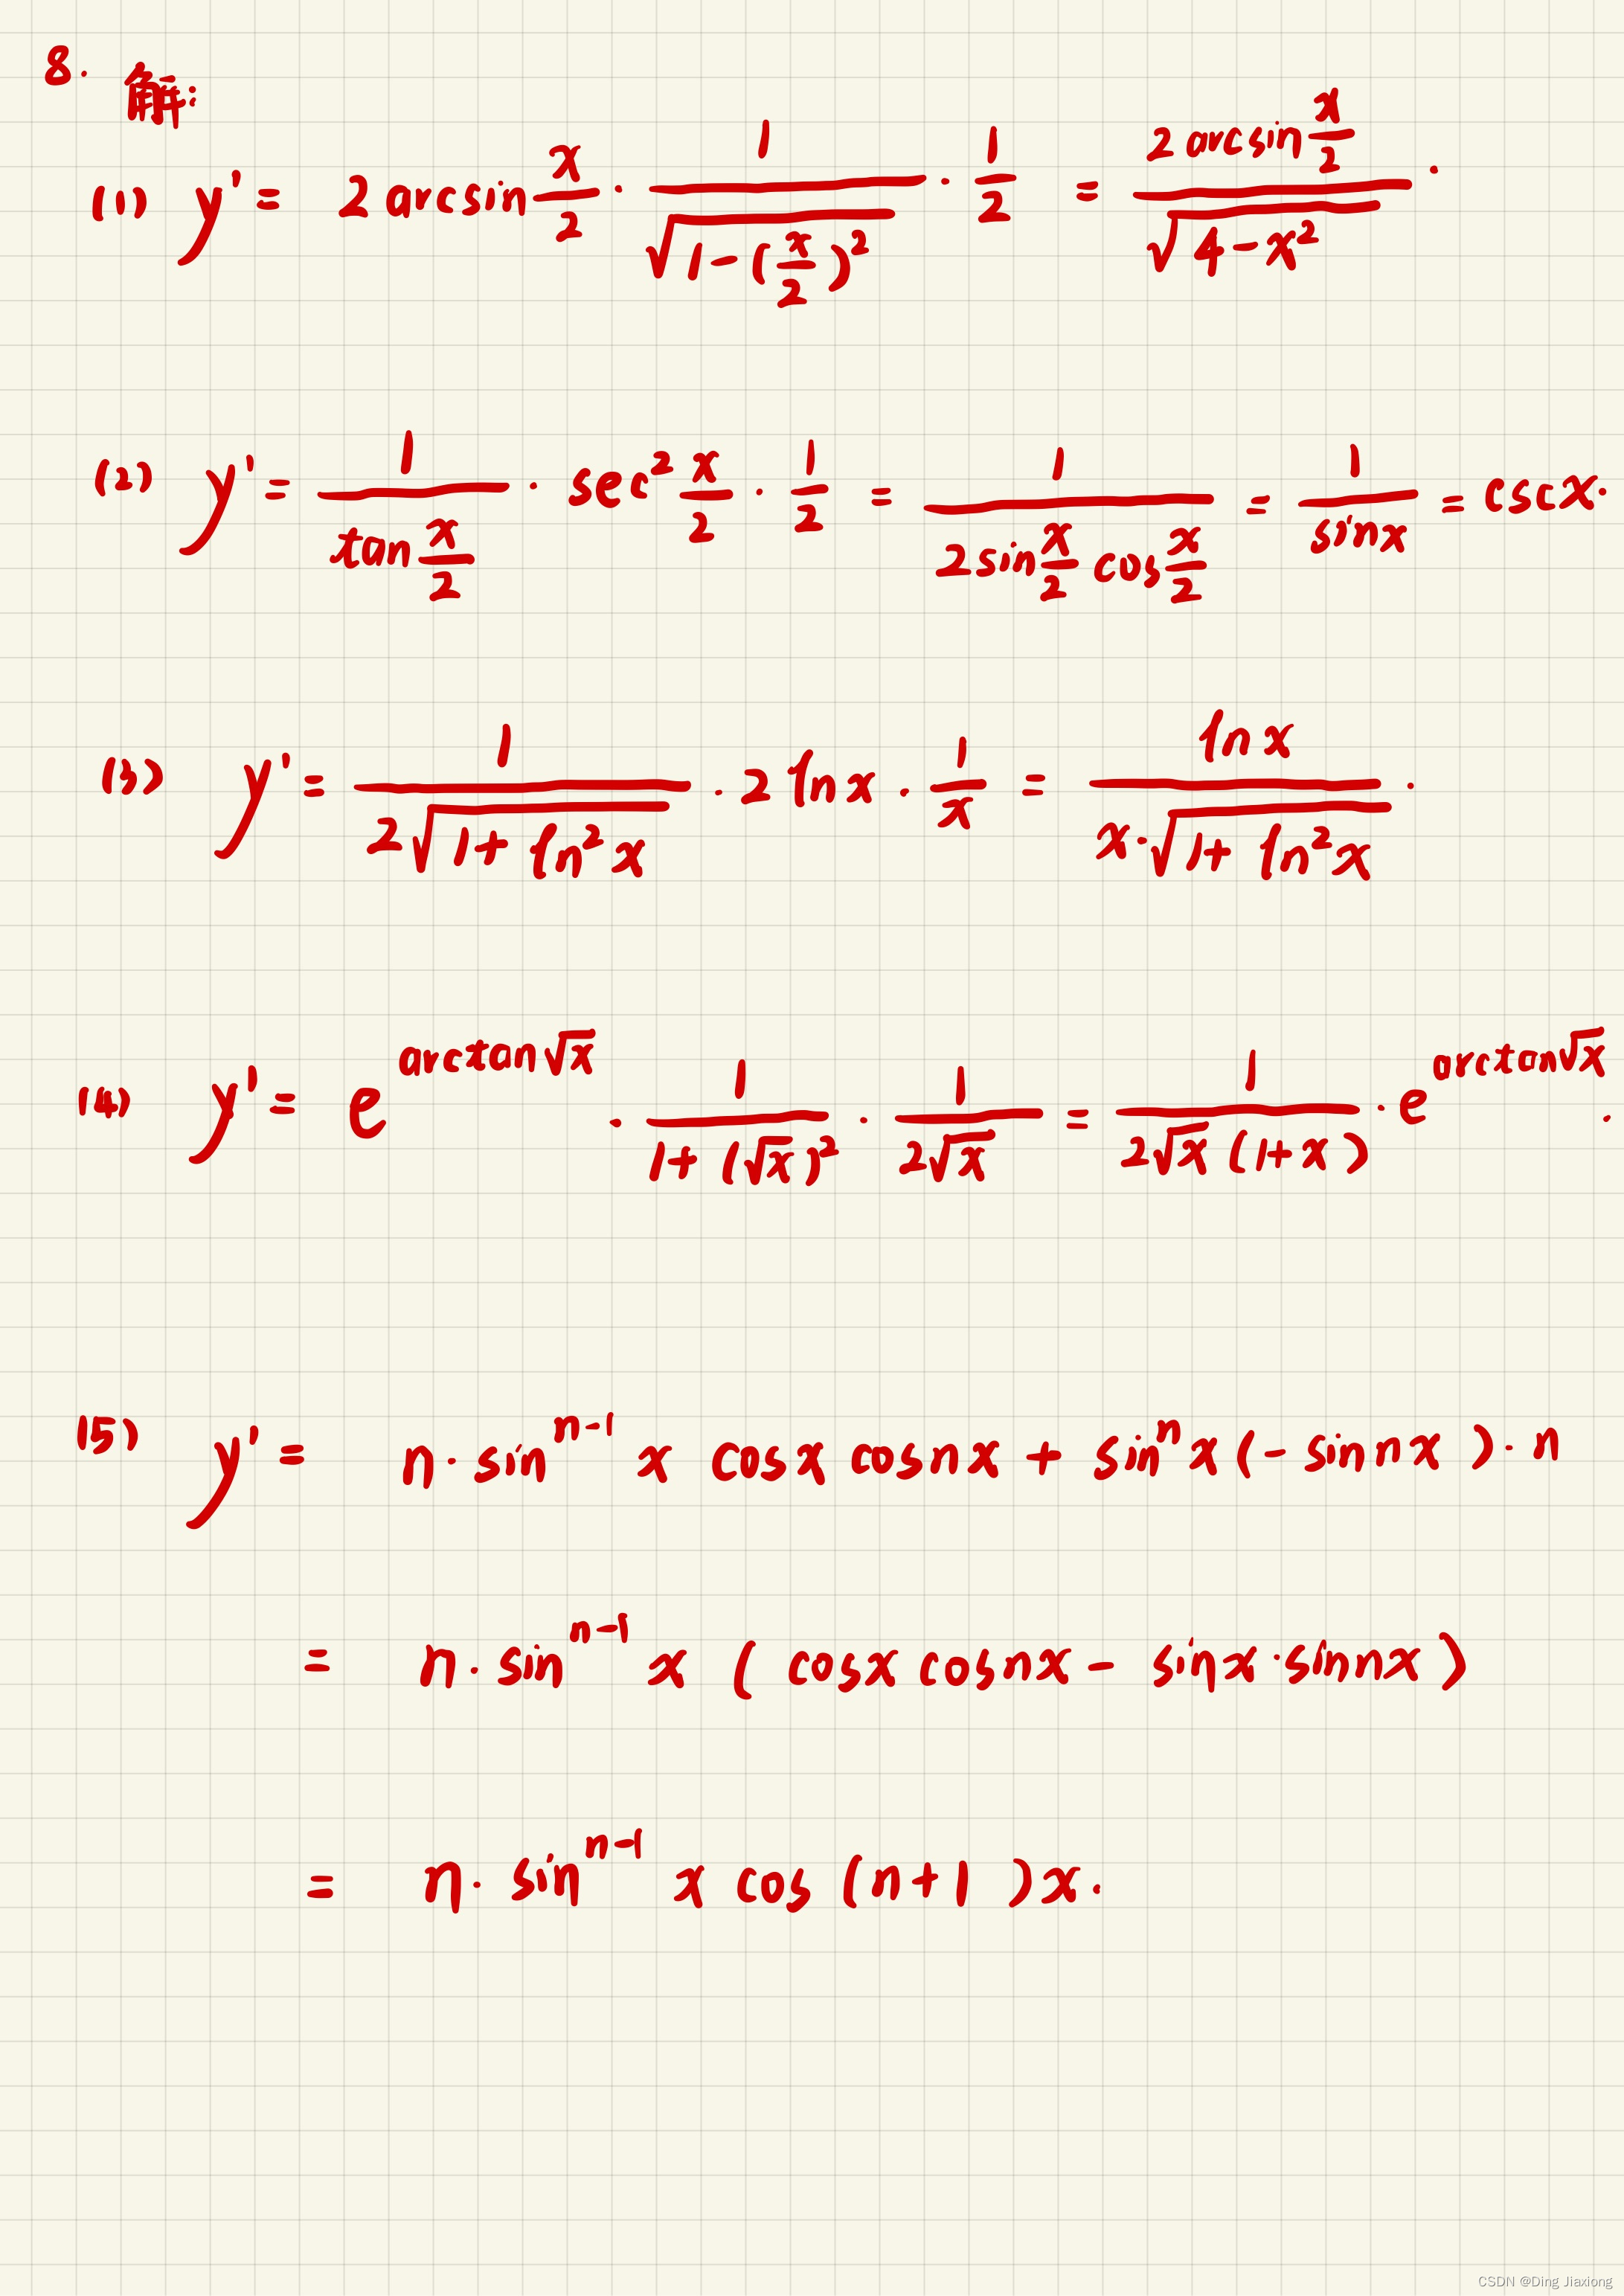 8. 解:
(1) y' = 2 arcsin x/2 · 1/√(1-(x/2)²) · 1/2 = 2 arcsin x/2 / √(4-x²) .
(2) y' = 1/tan x/2 · sec² x/2 · 1/2 = 1/(2 sin x/2 cos x/2) = 1/sinx = cscx.
(3) y' = 1/(2√(1+ln²x)) · 2 lnx · 1/x = lnx/(x·√(1+ln²x)) .
(4) y' = e^(arctan√x) · 1/(1+(√x)²) · 1/(2√x) = 1/(2√x(1+x)) · e^(arctan√x) .
(5) y' = n·sin^(n-1) x cosx cosnx + sin^n x(-sinnx)·n
= n·sin^(n-1) x (cosx cosnx - sinx·sinnx)
= n·sin^(n-1) x cos(n+1)x.
CSDN @Ding Jiaxiong